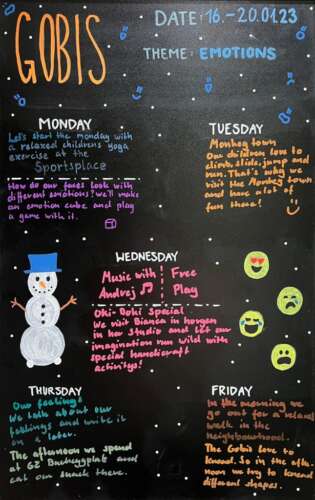 GOBIS
DATE: 16.-20.01.23
THEME: EMOTIONS
MONDAY
Let's start the monday with
a relaxed childrens yoga
exercise at the
Sportsplace
How do our faces look with
different emotions? We'll make
an emotion cube and play
a game with it.
TUESDAY
Monkey town
Our children love to
climb, slide, jump and
run. That's why we
visit the Monkey town
and have a lot of
fun there!
WEDNESDAY
Music with
Andrej
Free
Play
Oki-Doki Special
We visit Bianca in horgen
in her Studio and let our
imagination run wild with
special handicraft
activitys!
THURSDAY
Our feelings
We talk about our
feelings and write it
on a later.
The afternoon we spend
at GZ Bucheggplatz and
eat our snack there.
FRIDAY
In the morning we
go out for a relaxed
walk in the
neighbourhood.
The Gobis love to
knead. So in the after-
noon we try to knead
different shapes.